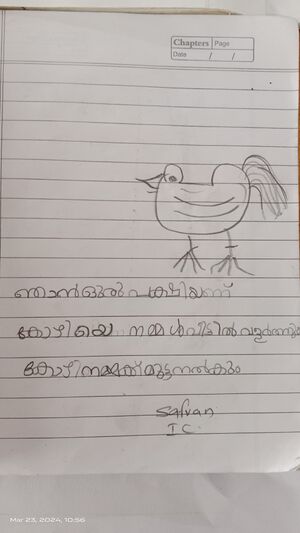 Chapters Page
Date / /
ഞാൻ ഒരു പക്ഷിയണ്
കോഴിയെ നമ്മൾ വീട്ടിൽ വളർത്തും
കോഴി നമ്മക്ക് മുട്ട നൽകും
Safvan
I C.
Mar 23, 2024, 10:56